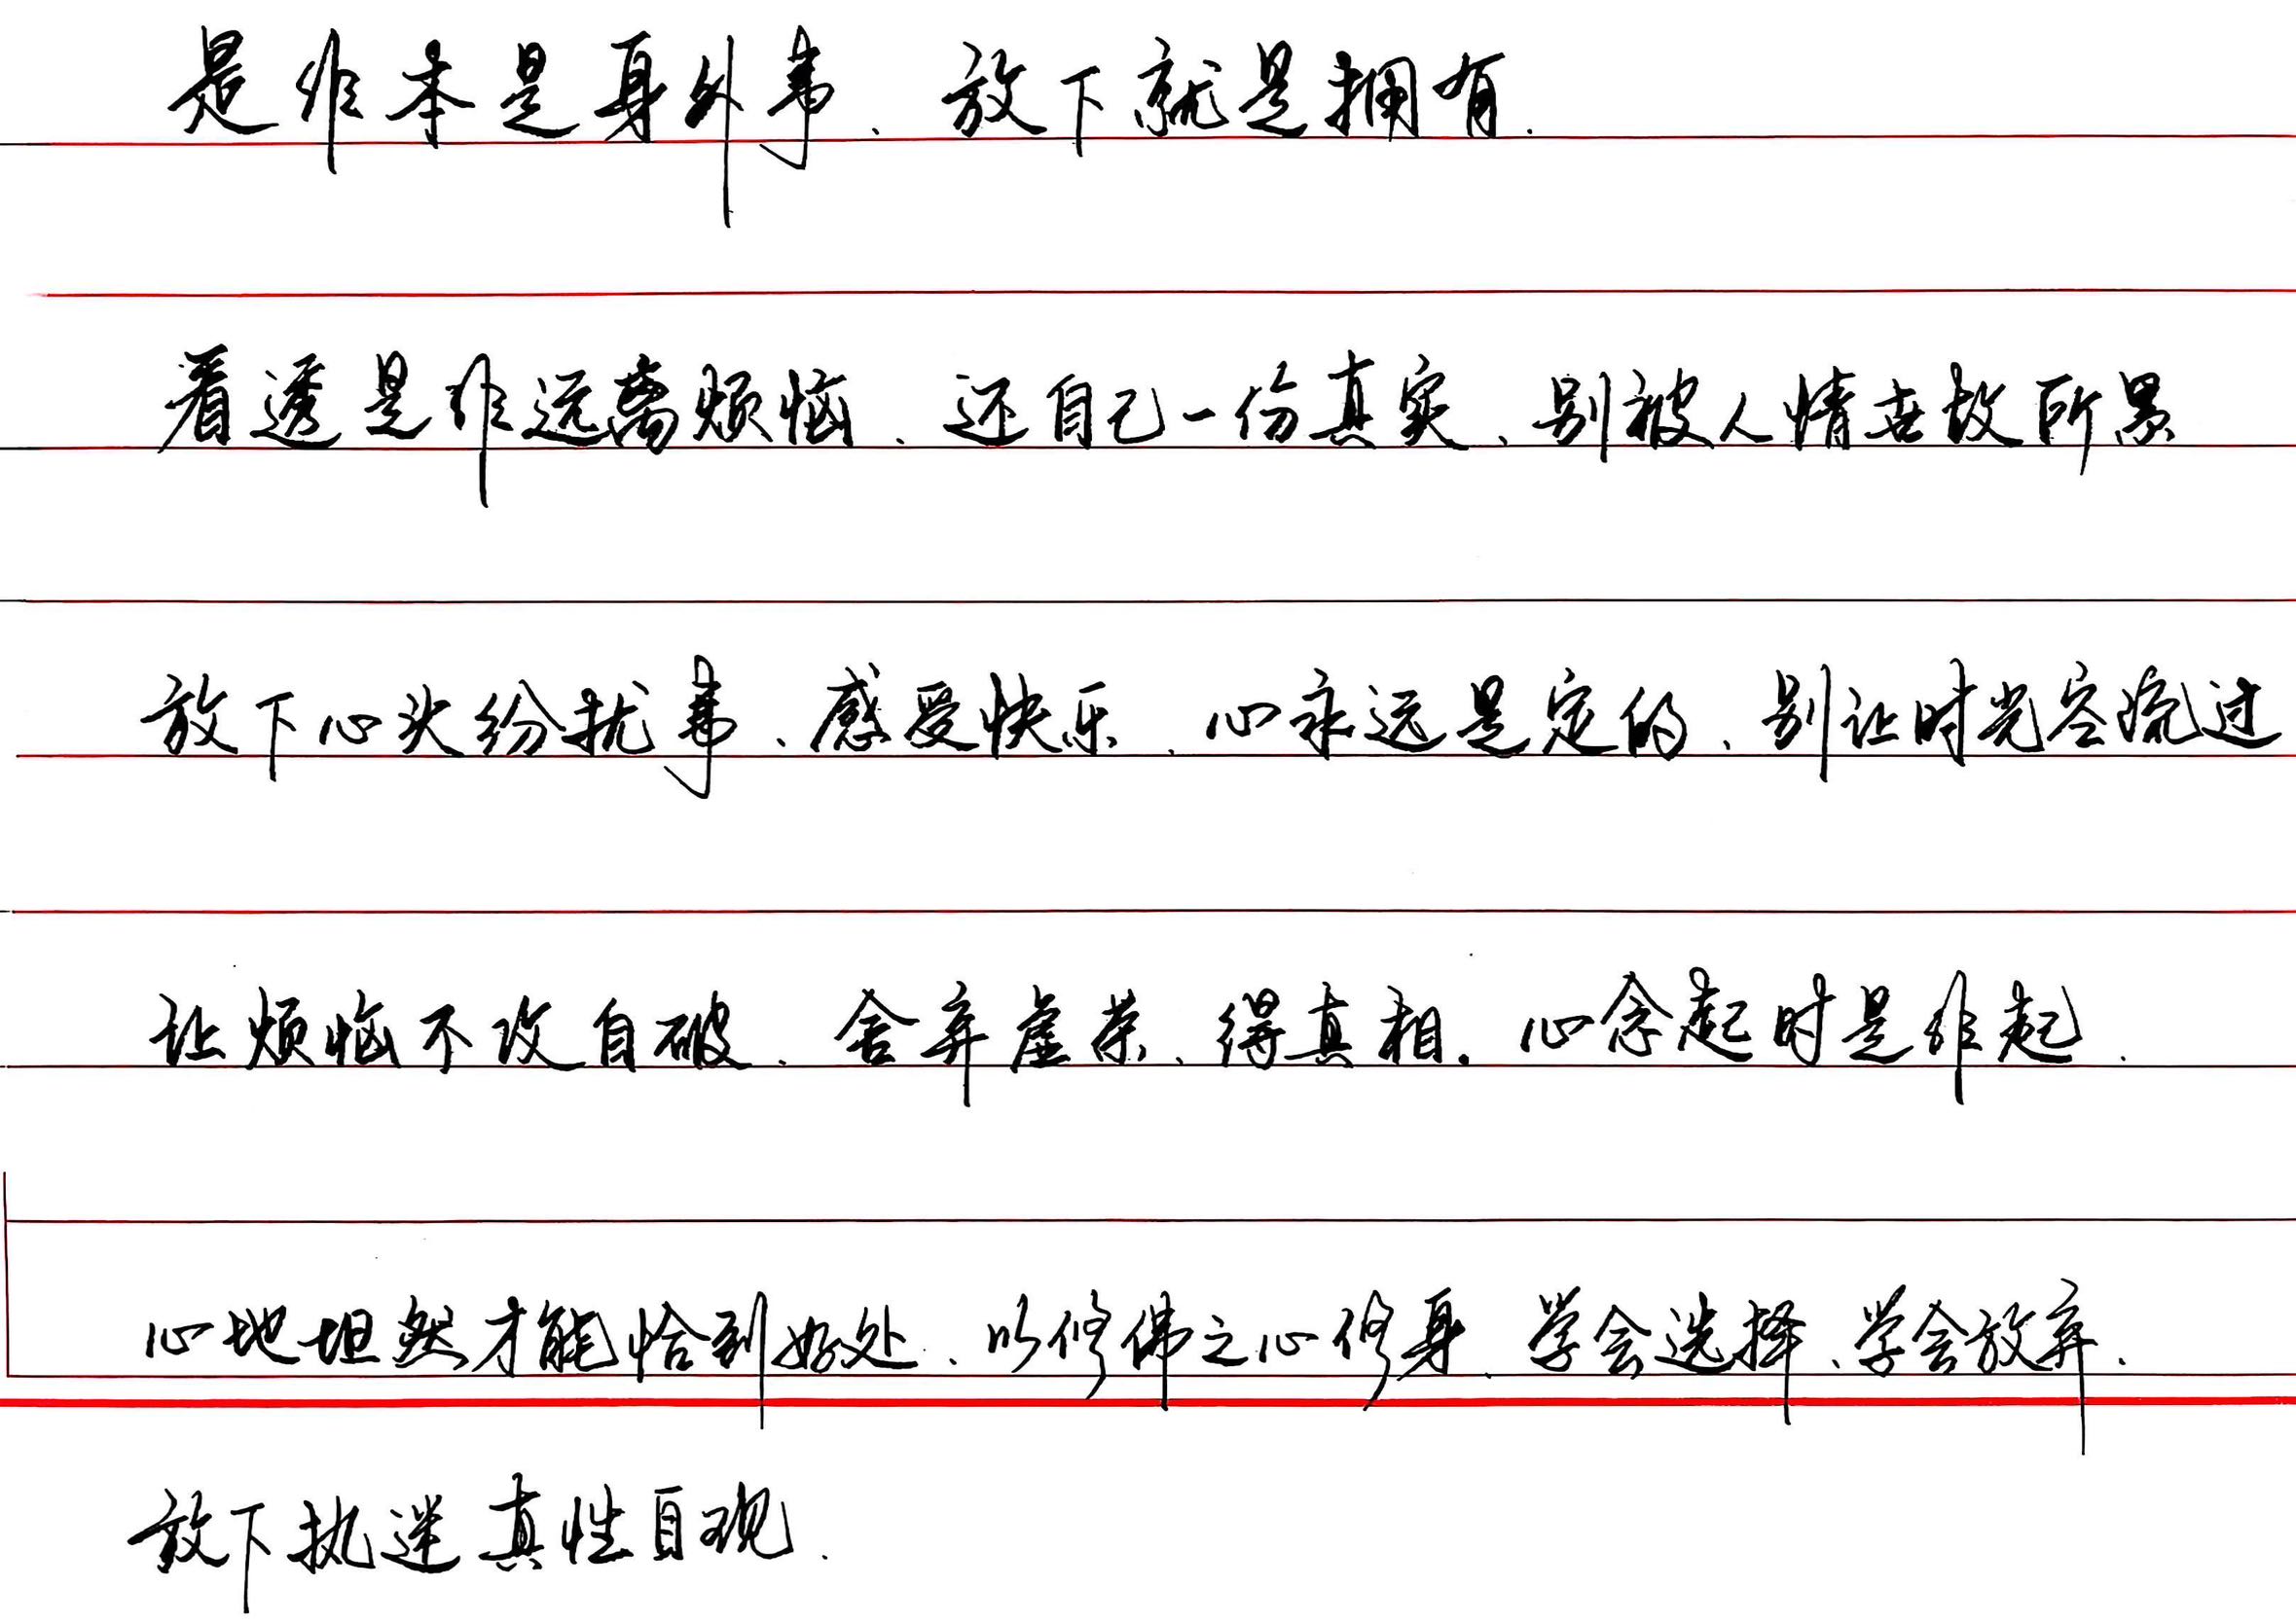 是非本是身外事、放下就是拥有.
看透是非远离烦恼、还自己一份真实、别被人情世故所累
放下心头纷扰事、感受快乐、心永远是定的、别让时光空流过
让烦恼不攻自破、舍弃虚荣、得真相.心念起时是非起.
心地坦然才能恰到好处、以修佛之心修身、学会选择、学会放弃.
放下执迷真性自现.